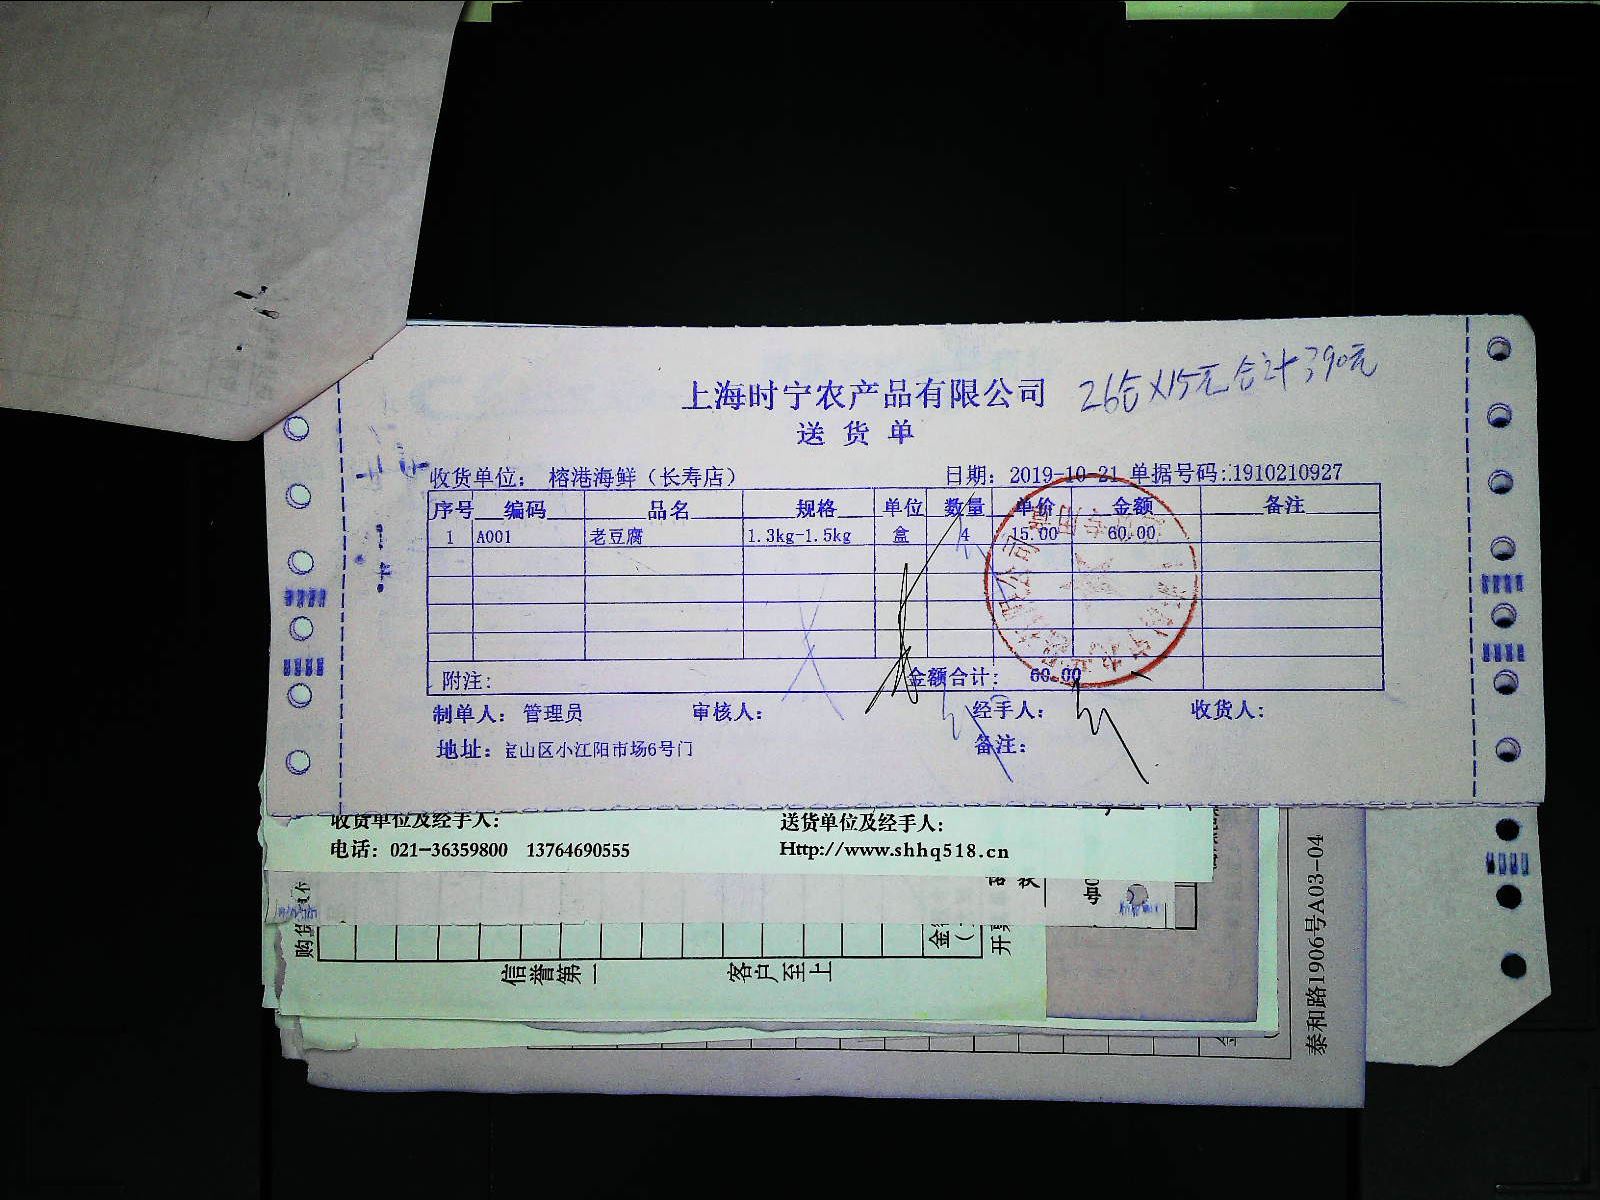 上海时宁农产品有限公司 26合×15元合计390元
送 货 单
收货单位： 榕港海鲜（长寿店） 日期： 2019-10-21 单据号码:.1910210927
序号 编码 品名 规格 单位 数量 单价 金额 备注
1 A001 老豆腐 1.3kg-1.5kg 盒 4 15.00 60.00
附注: 金额合计: 60.00
制单人： 管理员 审核人： 经手人： 收货人：
地址：宝山区小江阳市场6号门 备注：
收货单位及经手人： 送货单位及经手人：
电话：021-36359800 13764690555 Http://www.shhq518.cn
号
信誉第一 客户至上
泰和路1906号A03-04